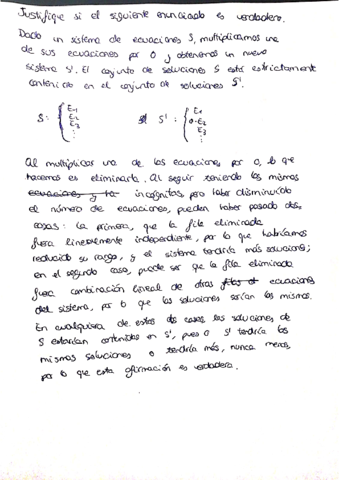 Justifique si el siguiente enunciado es verdadero.
Dado un sistema de ecuaciones S, multiplicamos una
de sus ecuaciones por 0 y obtenemos un nuevo
sistema S'. El conjunto de soluciones S está estrictamente
contenido en el conjunto de soluciones S'.
S: { E1 E2 E3 ⋮ S': { E1 0·E2 E3 ⋮
Al multiplicar una de las ecuaciones por 0, lo que
hacemos es eliminarla. Al seguir teniendo las mismas
incógnitas, pero haber disminuido
el número de ecuaciones, pueden haber pasado dos
cosas: la primera, que la fila eliminada
fuera linealmente independiente, por lo que habríamos
reducido su rango, y el sistema tendría más soluciones;
en el segundo caso, puede ser que la fila eliminada
fuera combinación lineal de otras ecuaciones
del sistema, por lo que las soluciones serían las mismas.
En cualquiera de estos dos casos las soluciones de
S estarían contenidas en S', pues o S' tendría las
mismas soluciones o tendría más, nunca menos,
por lo que esta afirmación es verdadera.